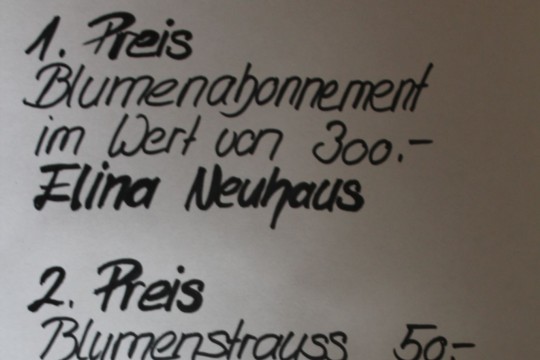 1. Preis
Blumenabonnement
im Wert von 300.-
Elina Neuhaus
2. Preis
Blumenstrauss 50-